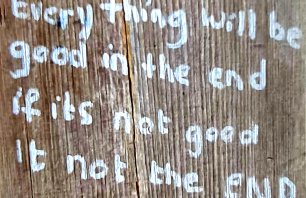 Every thing will be
good in the end
if its not good
It not the END